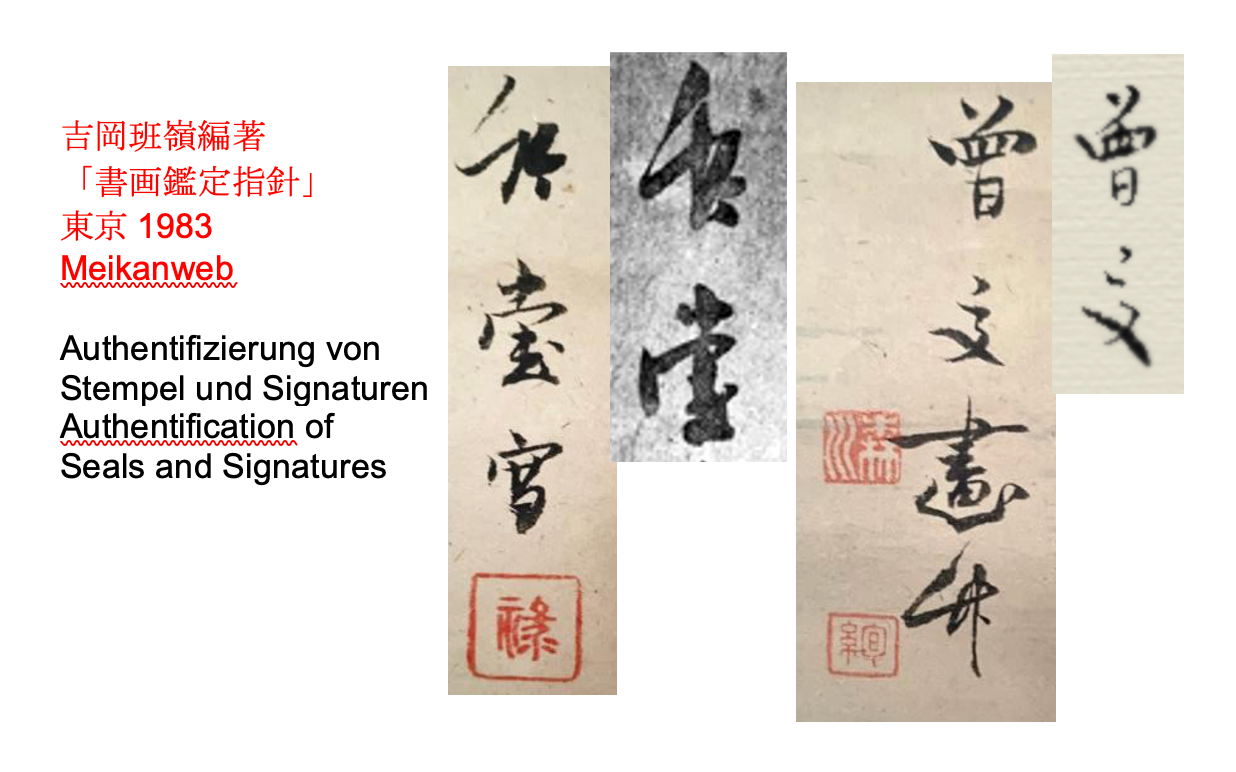 吉岡班嶺編著
「書画鑑定指針」
東京 1983
Meikanweb
Authentifizierung von
Stempel und Signaturen
Authentification of
Seals and Signatures
曾文畫併
曾文